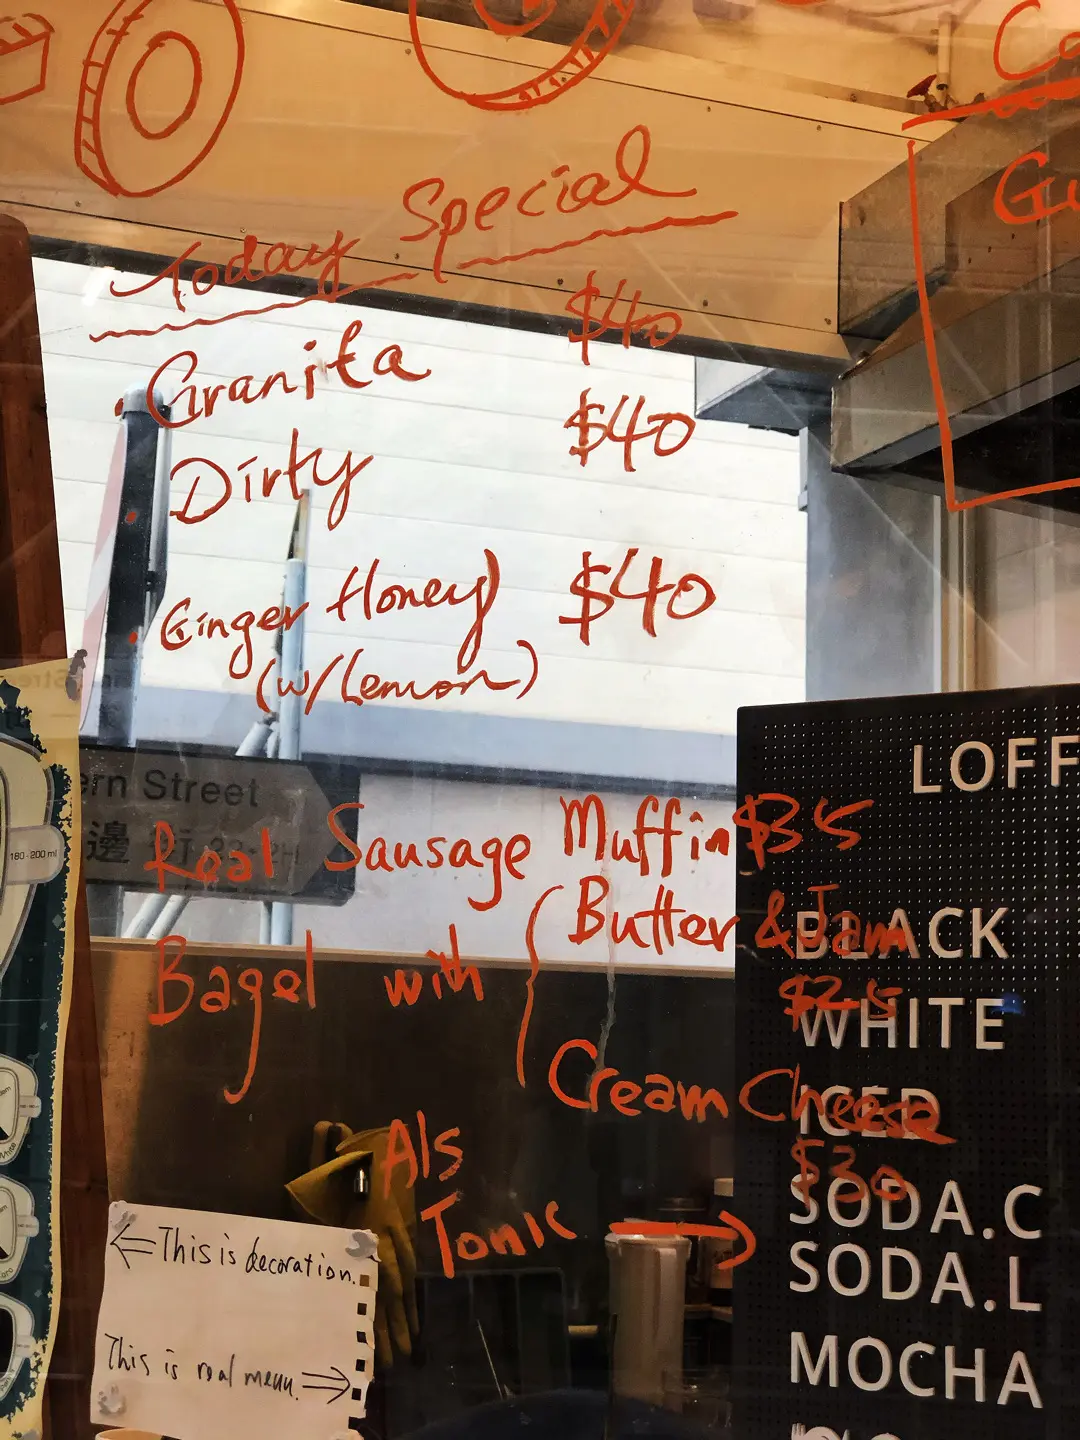 Today Special
$40
• Granita
$40
• Dirty
• Ginger Honey $40
(w/Lemon)
ern Street
邊 街
Real Sausage Muffin $35
Bagel with { Butter & Jam
$25
Cream Cheese
$30
Als
Tonic →
← This is decoration.
This is real menu. →
180-200 ml
LOFF
BLACK
WHITE
ICED
SODA.C
SODA.L
MOCHA
Co
Gu